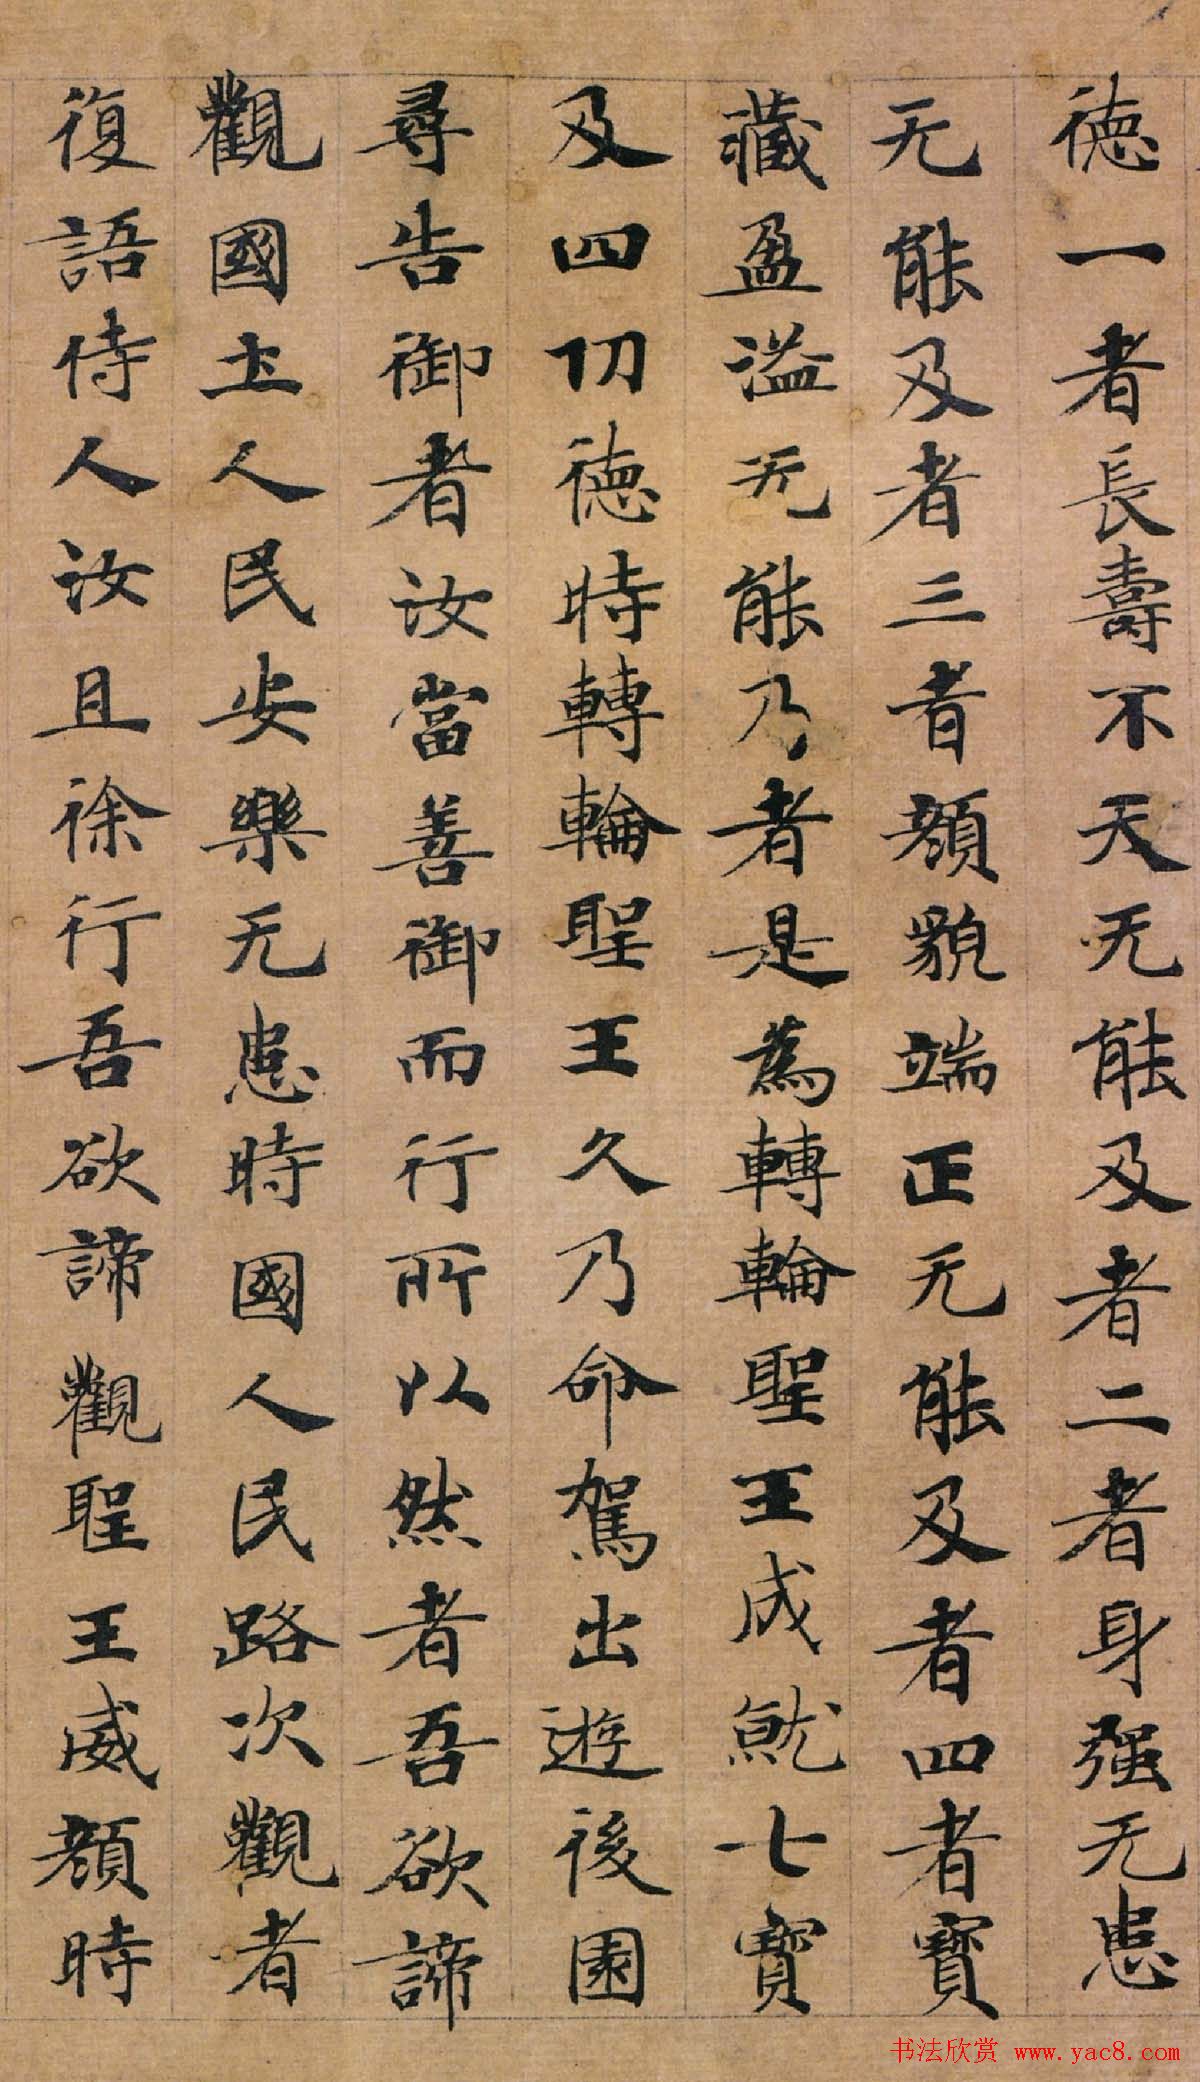 徳一者長壽不夭无能及者二者身强无患
无能及者三者顔貌端正无能及者四者寳
藏盈溢无能乃者是為轉輪聖王成就七寳
及四功徳時轉輪聖王久乃命駕出遊後園
尋告御者汝當善御而行所以然者吾欲諦
觀國土人民安樂无患時國人民路次觀者
復語侍人汝且徐行吾欲諦觀聖王威顔時
书法欣赏 www.yac8.com